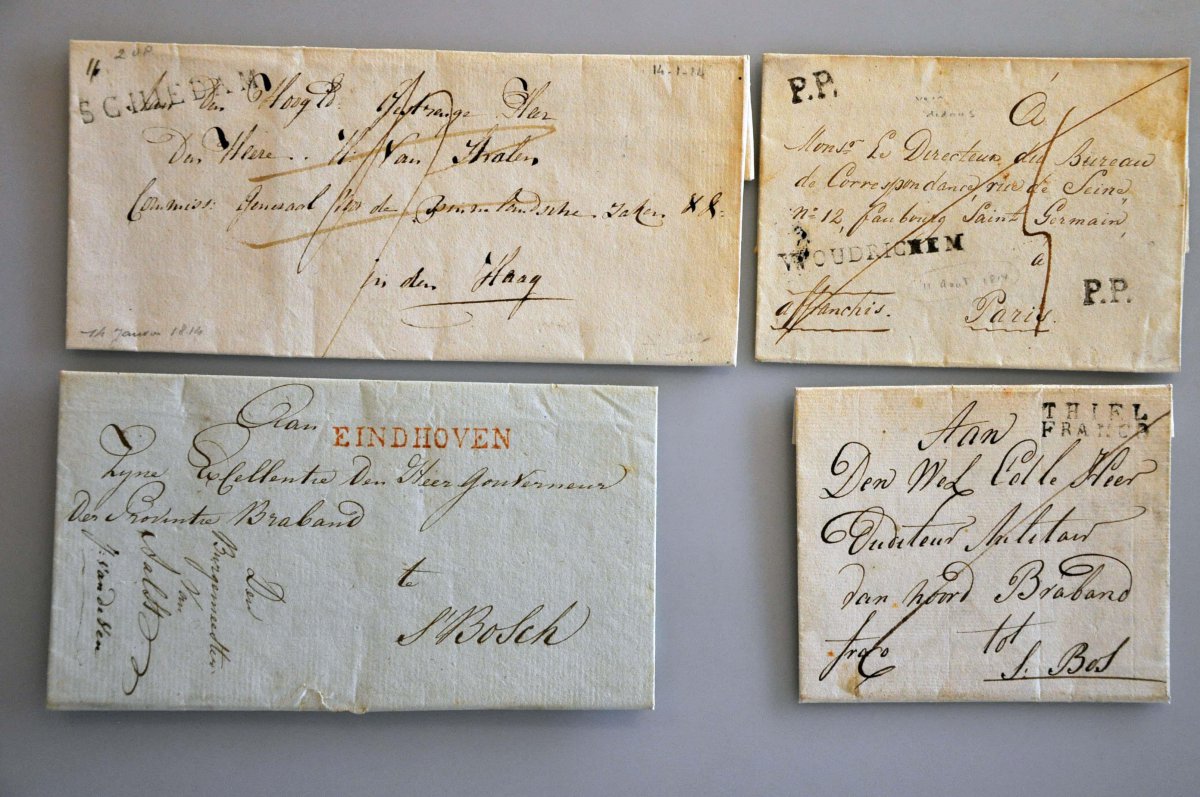 11
2 d.P.
14-1-14
SCHIEDAM
Aan Den Hoog Ed: Gestrenge Heer
Den Heere .. Van Stralen
Commiss: Generaal voor de Binnenlandsche Zaken &&:
in den Haag
14 Januari 1814
P.P.
À
Monsr Le Directeur du Bureau
de Correspondance, rue de Seine,
No 12, faubourg Saint Germain,
WOUDRICHEM
à
11 août 1814
P.P.
affranchis. Paris.
Aan
EINDHOVEN
Zyne Excellentie Den Heer Gouverneur
Der Provintie Braband
te
S'Bosch
Den
Borgemeester
Van
Aalst
J: van de Ven
THIEL
FRANCO
Aan
Den Wel Edele Heer
Auditeur Militair
van Noord Braband
frco tot
S. Bos